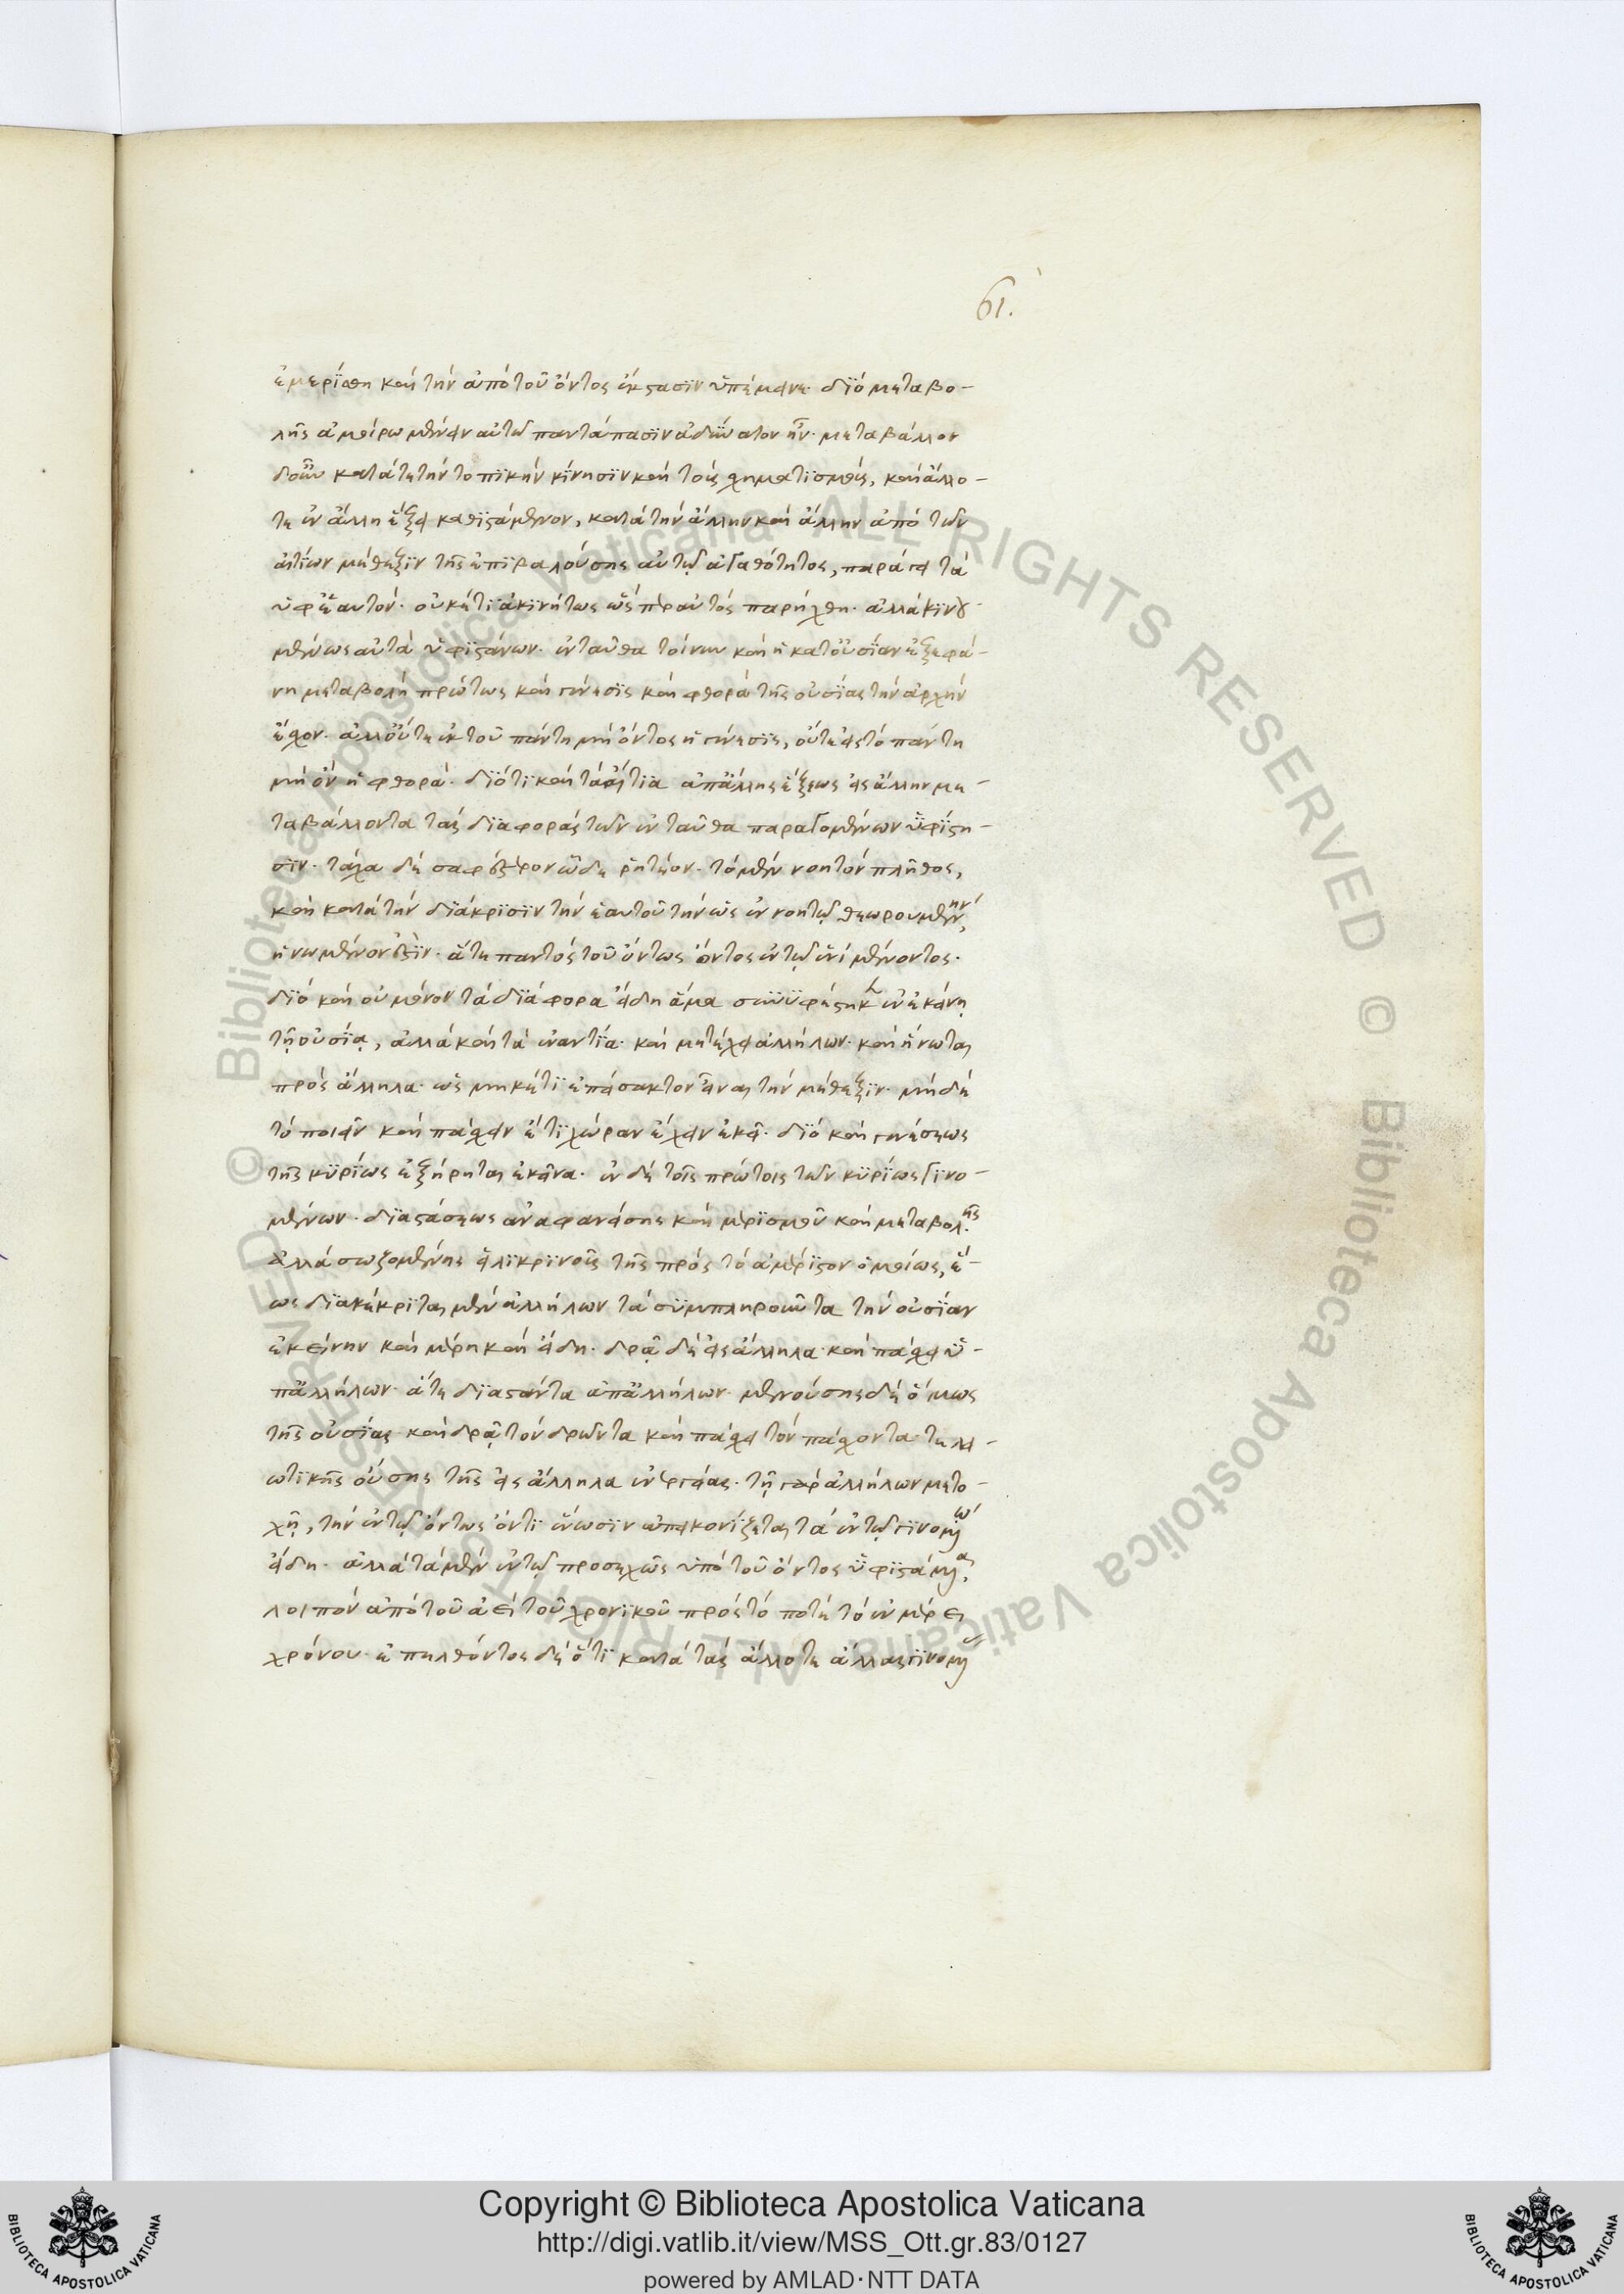 61.
ἐμερίσθη καὶ τὴν ἀπὸ τοῦ ὄντος ἔκστασιν ὑπέμεινε. διὸ μεταβο-
λῆς ἀμοίρω μένειν αὐτῶ παντάπασιν ἀδύνατον ἦν. μεταβάλλον
δοὖν κατά τε τὴν τοπικὴν κίνησιν καὶ τοὺς σχηματισμοὺς, καὶ ἄλλο-
τε ἐν ἄλλη ἕξει καθιστάμενον, κατὰ τὴν ἄλλην καὶ ἄλλην ἀπὸ τῶν
αἰτίων μέθεξιν τῆς ἐπιβαλούσης αὐτῷ ἀγαθότητος, παράγει τὰ
ὑφ' ἑαυτόν. οὐκέτι ἀκινήτως ὥσπερ αὐτὸς παρήχθη. ἀλλὰ κινου-
μένως αὐτὰ ὑφιστάνων. ἐνταῦθα τοίνυν καὶ ἡ κατ' οὐσίαν ἐξεφά-
νη μεταβολὴ πρώτως καὶ γένεσις καὶ φθορὰ τῆς οὐσίας τὴν ἀρχὴν
ἔσχον. ἀλλ' οὔτε ἐκ τοῦ πάντη μὴ ὄντος ἡ γένεσις, οὔτε εἰς τὸ πάντη
μὴ ὂν ἡ φθορά. διότι καὶ τὰ αἴτια ἀπ' ἄλλης ἕξεως εἰς ἄλλην με-
ταβάλλοντα τὰς διαφορὰς τῶν ἐνταῦθα παραγομένων ὑφίστη-
σιν. τάχα δὲ σαφέστερον ὧδε ῥητέον. τὸ μὲν νοητὸν πλῆθος,
καὶ κατὰ τὴν διάκρισιν τὴν ἑαυτοῦ τὴν ὡς ἐν νοητῷ θεωρουμένην,
ἡνωμένον ἐστὶν. ἅτε παντὸς τοῦ ὄντως ὄντος ἐν τῷ ἑνὶ μένοντος.
διὸ καὶ οὐ μόνον τὰ διάφορα εἴδη ἅμα συνυφέστηκεν ἐν ἐκείνῃ
τῇ οὐσίᾳ, ἀλλὰ καὶ τὰ ἐναντία. καὶ μετέχει ἀλλήλων. καὶ ἥνωται
πρὸς ἄλληλα. ὡς μηκέτι ἐπείσακτον εἶναι τὴν μέθεξιν. μηδὲ
τὸ ποιεῖν καὶ πάσχειν ἔτι χώραν ἔχειν ἐκεῖ. διὸ καὶ γενέσεως
τῆς κυρίως ἐξήρηται ἐκεῖνα. ἐν δὲ τοῖς πρώτοις τῶν κυρίως γινο-
μένων. διαστάσεως ἀναφανείσης καὶ μερισμοῦ καὶ μεταβολῆς
ἀλλὰ σωζομένης εἰλικρινοῦς τῆς πρὸς τὸ ἀμέριστον ὁμοίως, ἕ-
ως διακέκριται μὲν ἀλλήλων τὰ συμπληροῦντα τὴν οὐσίαν
ἐκείνην καὶ μέρη καὶ εἴδη. δρᾷ δὲ εἰς ἄλληλα. καὶ πάσχει ὑ-
π' ἀλλήλων. ἅτε διαστάντα ἀπ' ἀλλήλων. μενούσης δὲ ὅμως
τῆς οὐσίας. καὶ δρᾷ τὸν δρῶντα καὶ πάσχει τὸν πάσχοντα. τελει-
ωτικῆς οὔσης τῆς εἰς ἄλληλα ἐνεργείας. τῇ γὰρ ἀλλήλων μετο-
χῇ, τὴν ἐν τῷ ὄντως ὄντι ἕνωσιν ἀπεικονίζεται τὰ ἐν τῷ γινομένῳ
εἴδη. ἀλλὰ τὰ μὲν ἐν τῷ προσεχῶς ὑπὸ τοῦ ὄντος ὑφισταμένα,
λοιπὸν ἀπὸ τοῦ ἀεὶ τοῦ χρονικοῦ πρὸς τὸ ποτὲ τὸ ἐν μέρει
χρόνου. ἐπελθόντος δὲ ὅτι κατὰ τὰς ἄλλοτε ἄλλας γινομένας
© Biblioteca Apostolica Vaticana ALL RIGHTS RESERVED
© Biblioteca Apostolica Vaticana ALL RIGHTS RESERVED
Copyright © Biblioteca Apostolica Vaticana
http://digi.vatlib.it/view/MSS_Ott.gr.83/0127
powered by AMLAD·NTT DATA
BIBLIOTECA APOSTOLICA VATICANA
BIBLIOTECA APOSTOLICA VATICANA